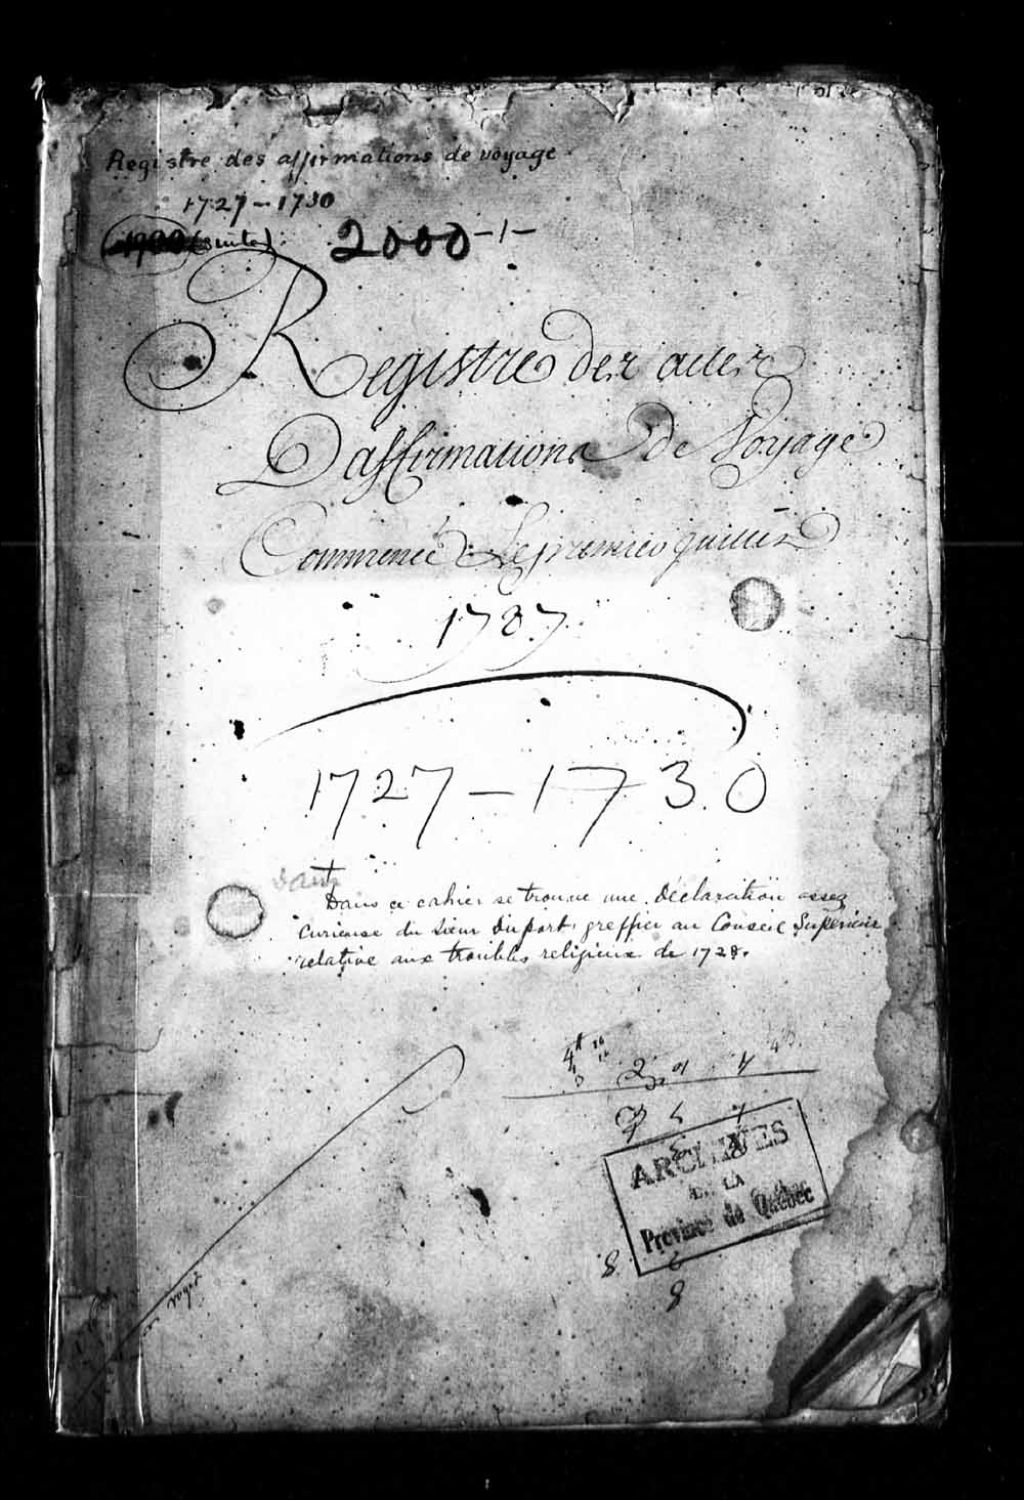 Registre des affirmations de voyage
1727-1730
(suite)
2000-1-
Registre des actes
Daffirmations De Voyage
Commencé Le premier juillet
1727
1727-1730
Dans ce cahier se trouve une déclaration assez
curieuse du Sieur Duport, greffier au Conseil Supérieur
relative aux troubles religieux de 1728.
2 9 4
ARCHIVES
DE LA
Province de Québec
8 6
8